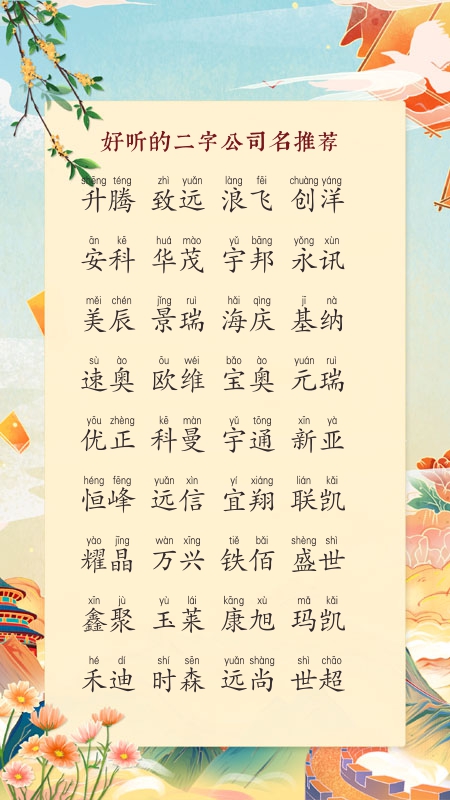 好听的二字公司名推荐
shēng téng zhì yuǎn làng fēi chuàng yáng
升腾 致远 浪飞 创洋
ān kē huá mào yǔ bāng yǒng xùn
安科 华茂 宇邦 永讯
měi chén jǐng ruì hǎi qìng jī nà
美辰 景瑞 海庆 基纳
sù ào ōu wéi bǎo ào yuán ruì
速奥 欧维 宝奥 元瑞
yōu zhèng kē màn yǔ tōng xīn yà
优正 科曼 宇通 新亚
héng fēng yuǎn xìn yí xiáng lián kǎi
恒峰 远信 宜翔 联凯
yào jīng wàn xīng tiě bǎi shèng shì
耀晶 万兴 铁佰 盛世
xīn jù yù lái kāng xù mǎ kǎi
鑫聚 玉莱 康旭 玛凯
hé dí shí sēn yuǎn shàng shì chāo
禾迪 时森 远尚 世超